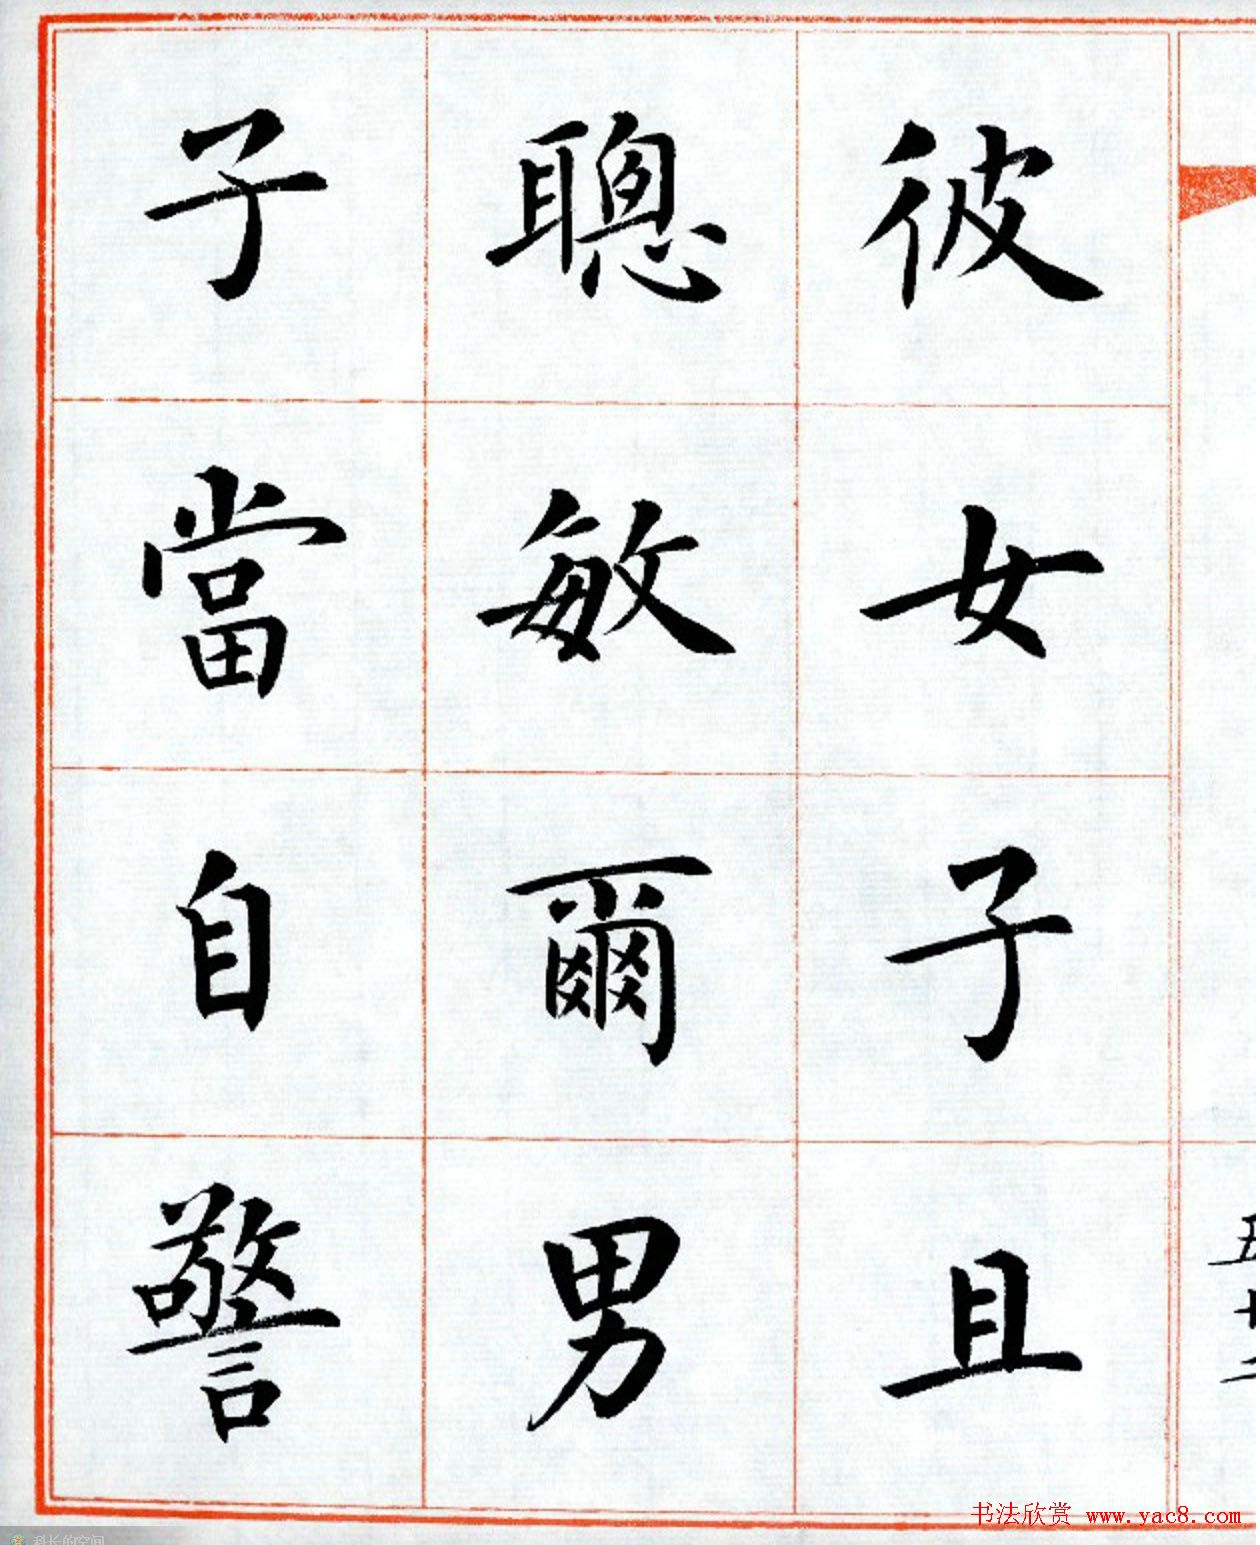 彼女子且
聰敏爾男
子當自警
书法欣赏 www.yac8.com
科长的空间